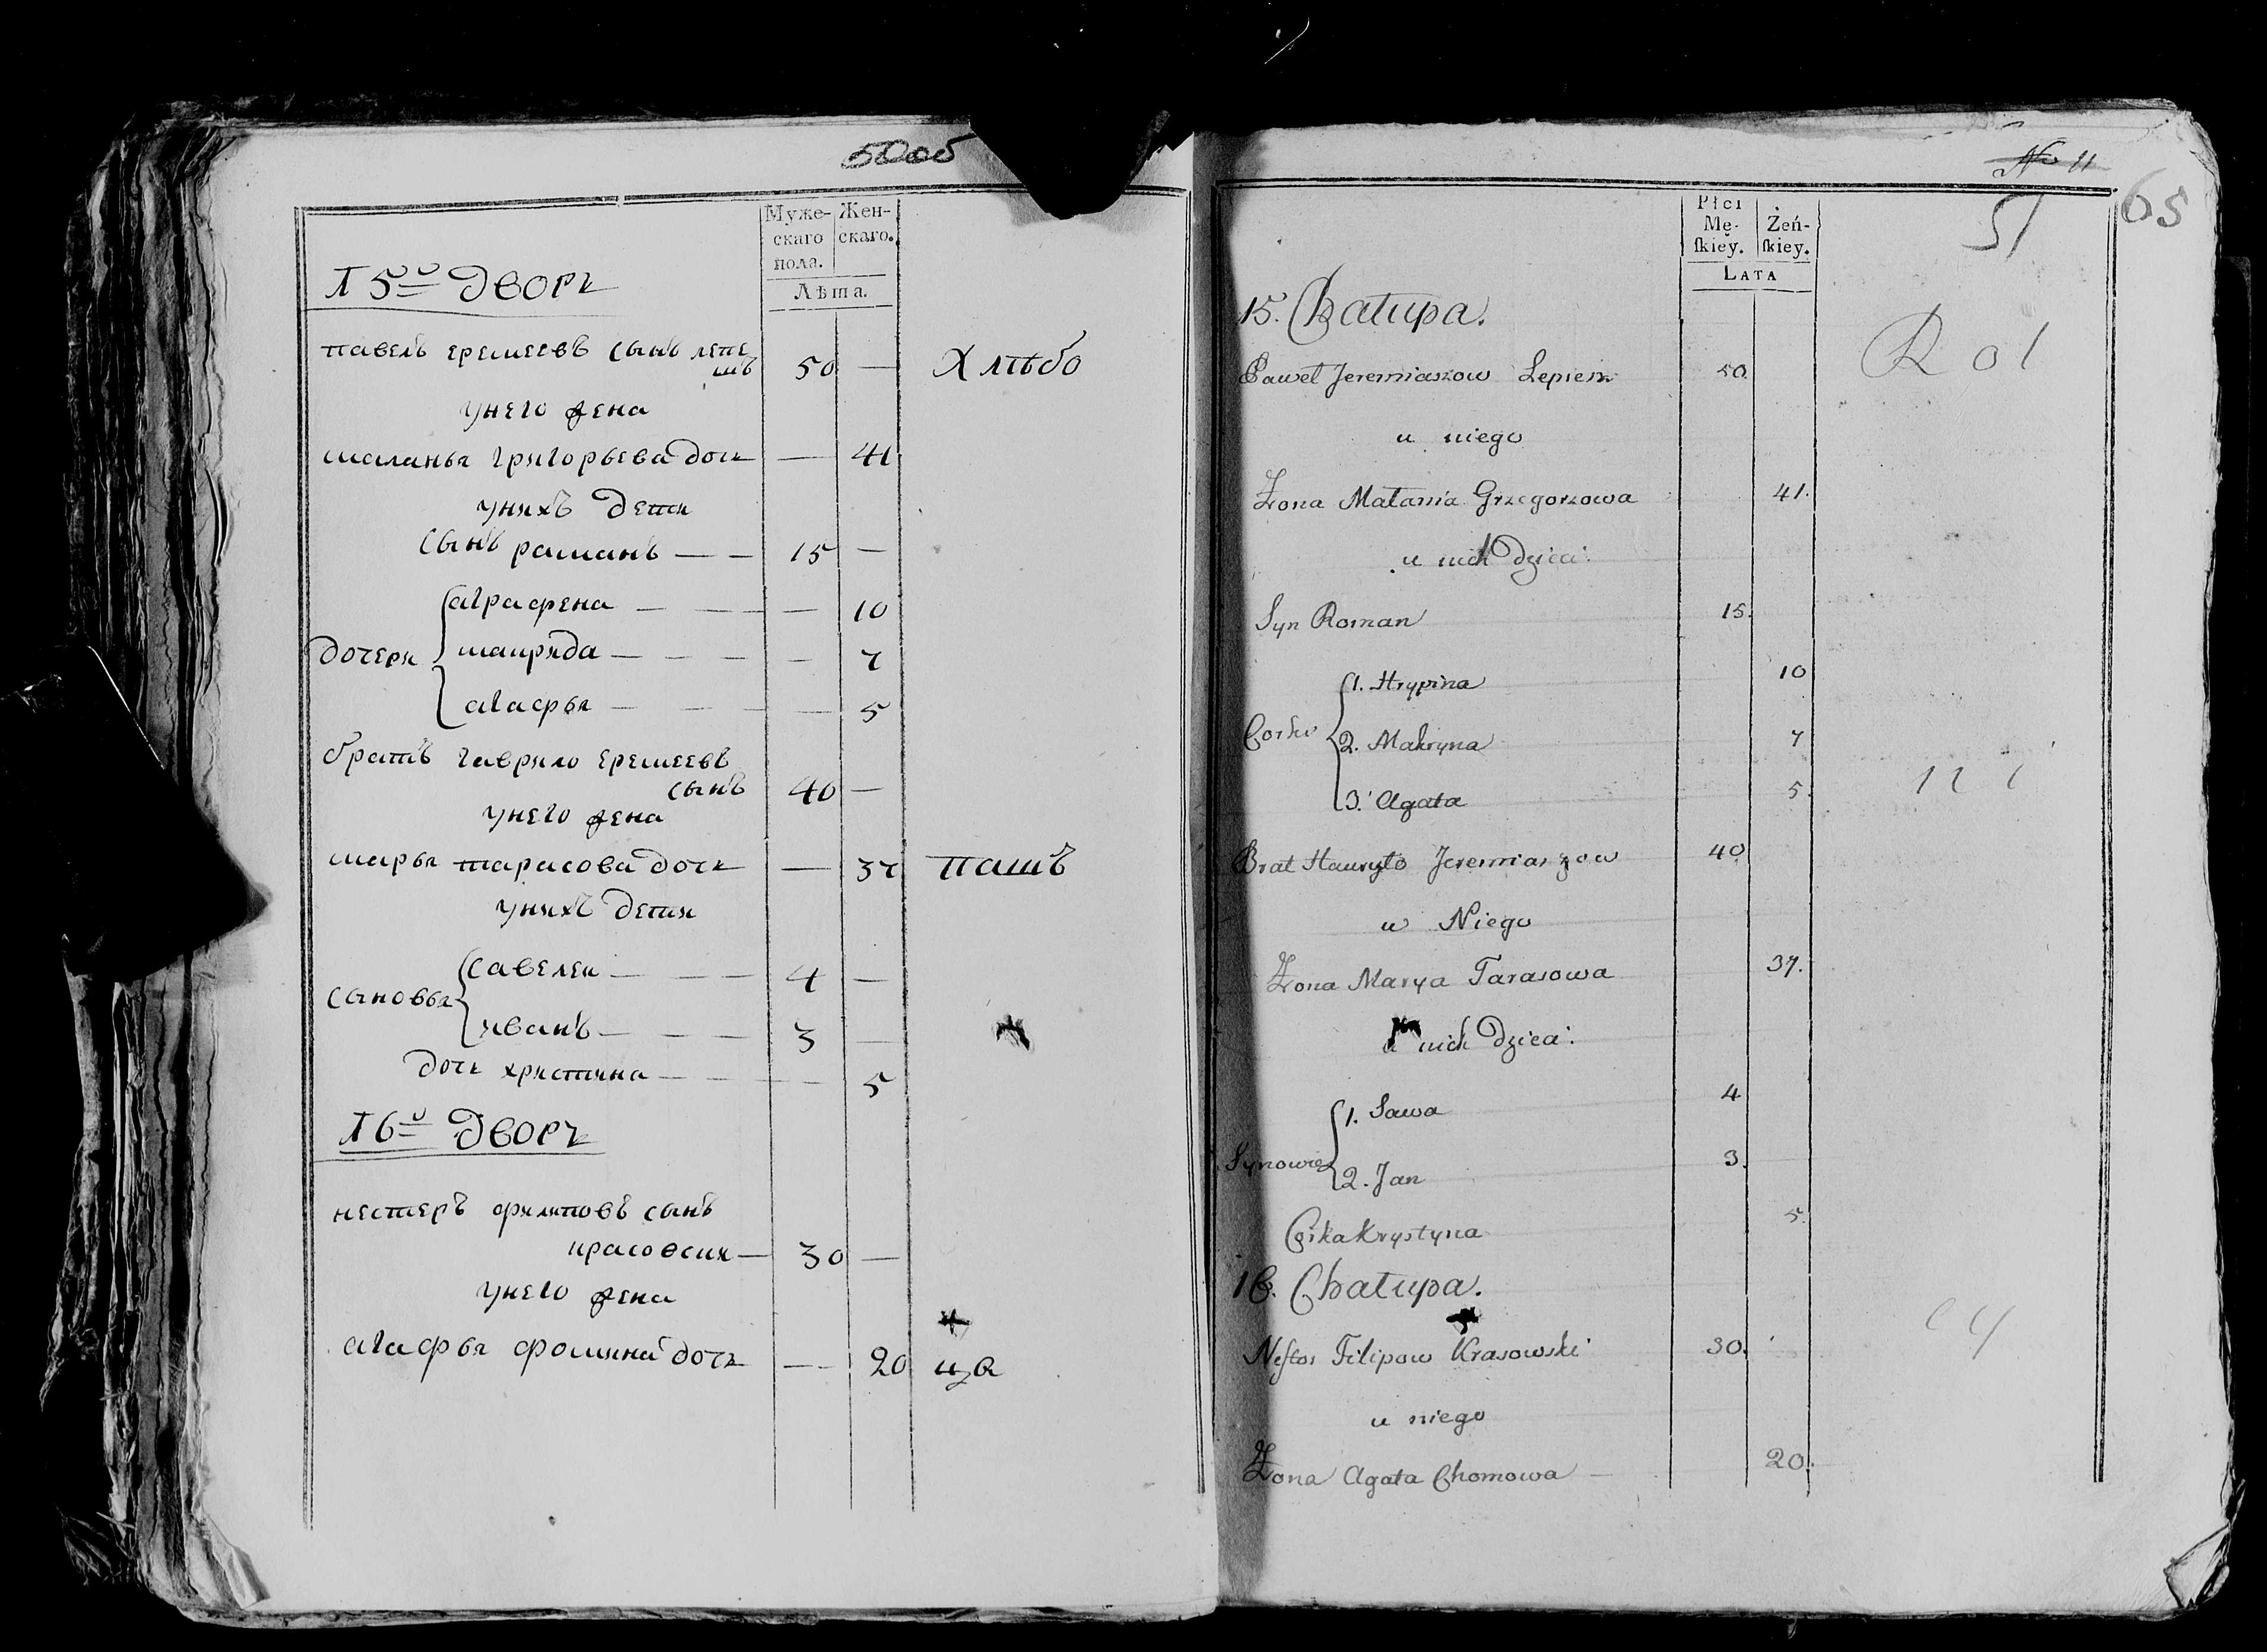 50об
Муже-
скаго
пола.
Жен-
скаго.
Лѣта.
15й дворъ
павелъ еремеевъ сынъ лепе
шъ 50 — Хлѣбо
унего жена
маланья григорьева дочь — 41
унихъ дети
сынъ раманъ — — 15 —
аграфена — — — — 10
дочери макрида — — — — 7
агафья — — — — 5
братъ гаврило еремеевъ
сынъ 40 —
унего жена
марья тарасова дочь — 37 пашъ
унихъ дети
савелеи — — — 4 —
сыновья
иванъ — — — 3 —
дочь христина — — — 5
16й дворъ
нестеръ филиповъ сынъ
красовски — 30 —
унего жена
агафья фомина дочь — 20 ца
No 11
51
65
Płci
Mę-
ſkiey.
Żeń-
ſkiey.
LATA
15. Chałupa.
Paweł Jeremiaszow Lepiesz 50. Rol
u niego
Żona Małania Grzegorzowa 41.
u nich Dzieci:
Syn Roman 15.
1. Hrypina 10
Corki 2. Makryna 7
3. Agata 5.
ni
Brat Hauryło Jeremiaszow 40
u Niego
Żona Marya Tarasowa 37.
u nich Dzieci:
1. Sawa 4
Synowie
2. Jan 3.
Córka Krystyna 5.
16. Chałupa.
cy
Neſtor Filipow Krasowski 30.
u niego
Żona Agata Chomowa — 20.